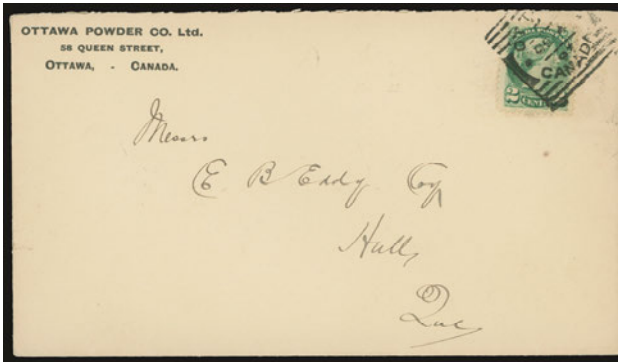 OTTAWA POWDER CO. Ltd.
56 QUEEN STREET,
OTTAWA, - CANADA.
CANADA
2 CENTS
Messrs
E B Eddy Coy
Hull,
Que